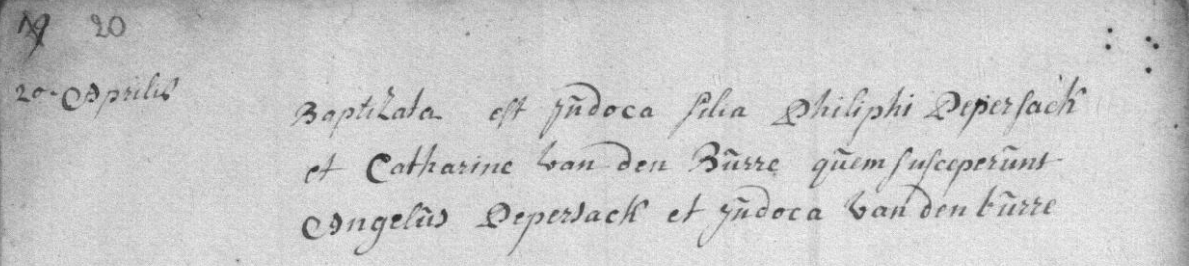 19 20
20. Aprilis
Baptizata est Judoca filia Philiphi Pepersack
et Catharine van den Burre quem susceperunt
Angelus Pepersack et Judoca van den burre